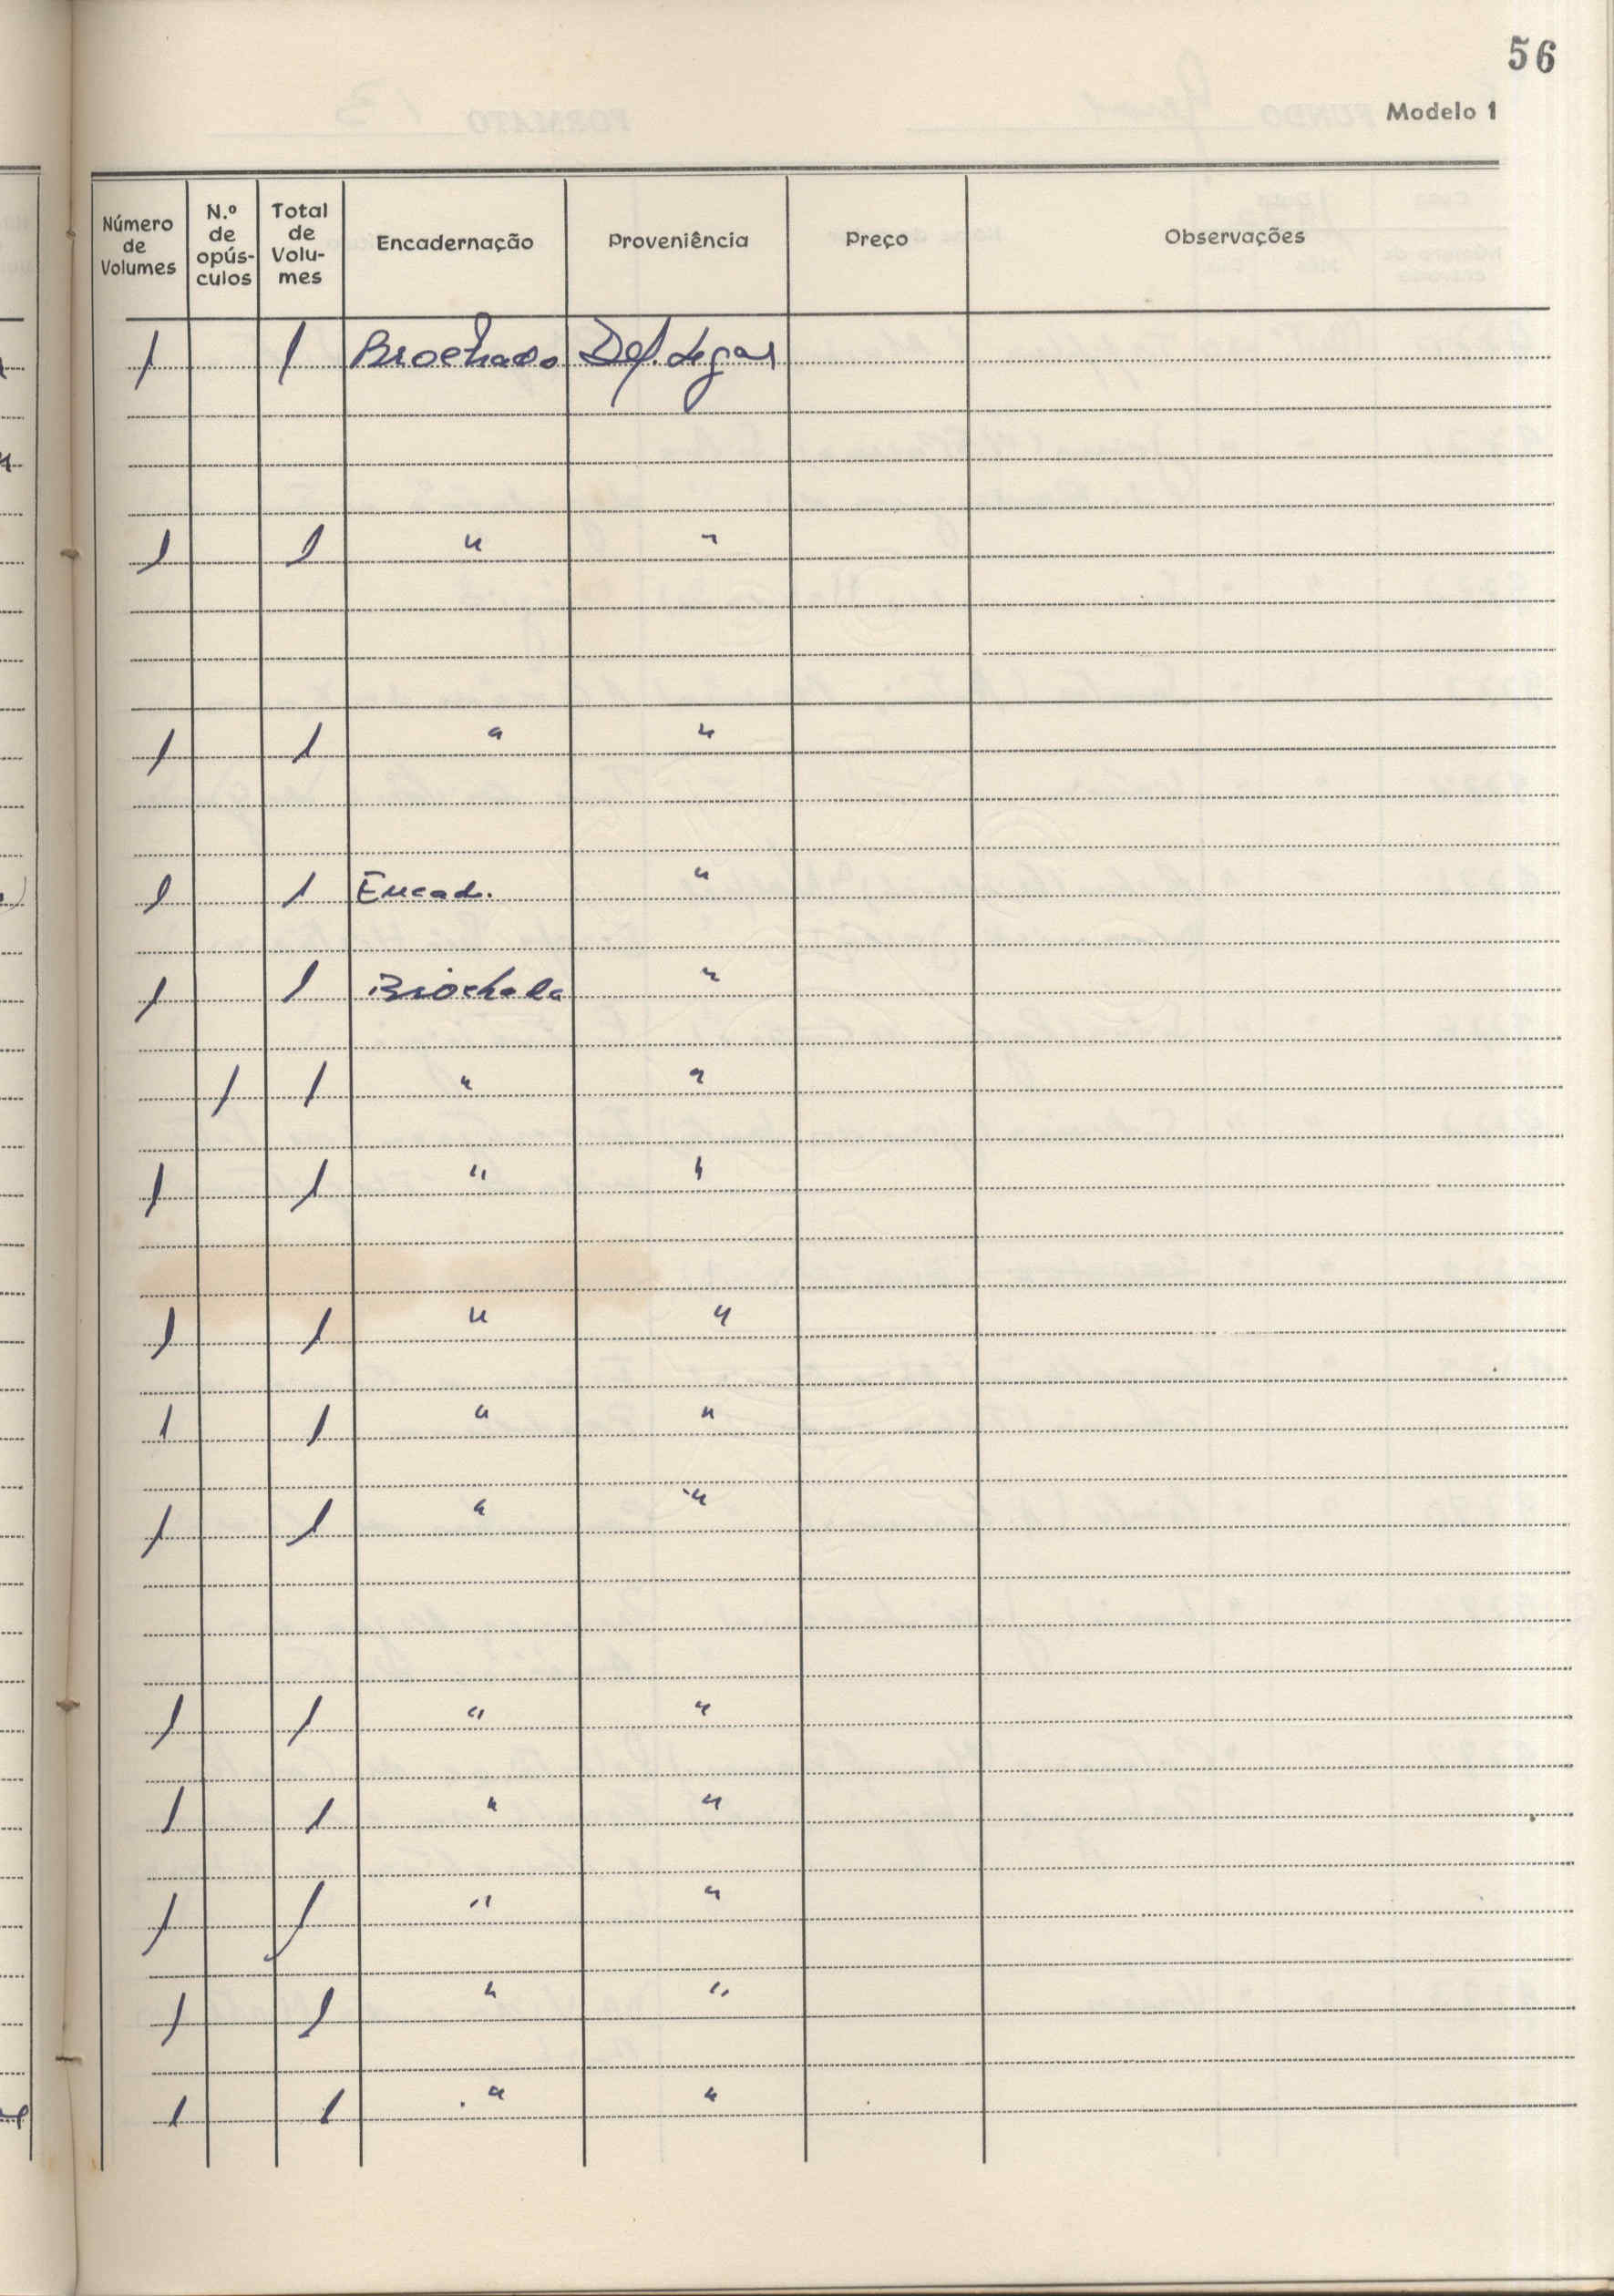 56
Modelo 1
Número de Volumes N.º de opúsculos Total de Volumes Encadernação Proveniência Preço Observações
1 1 Brochado Dep. Legal
1 1 " "
1 1 " "
1 1 Encad. "
1 1 Brochado "
1 1 " "
1 1 " "
1 1 " "
1 1 " "
1 1 " "
1 1 " "
1 1 " "
1 1 " "
1 1 " "
1 1 " "